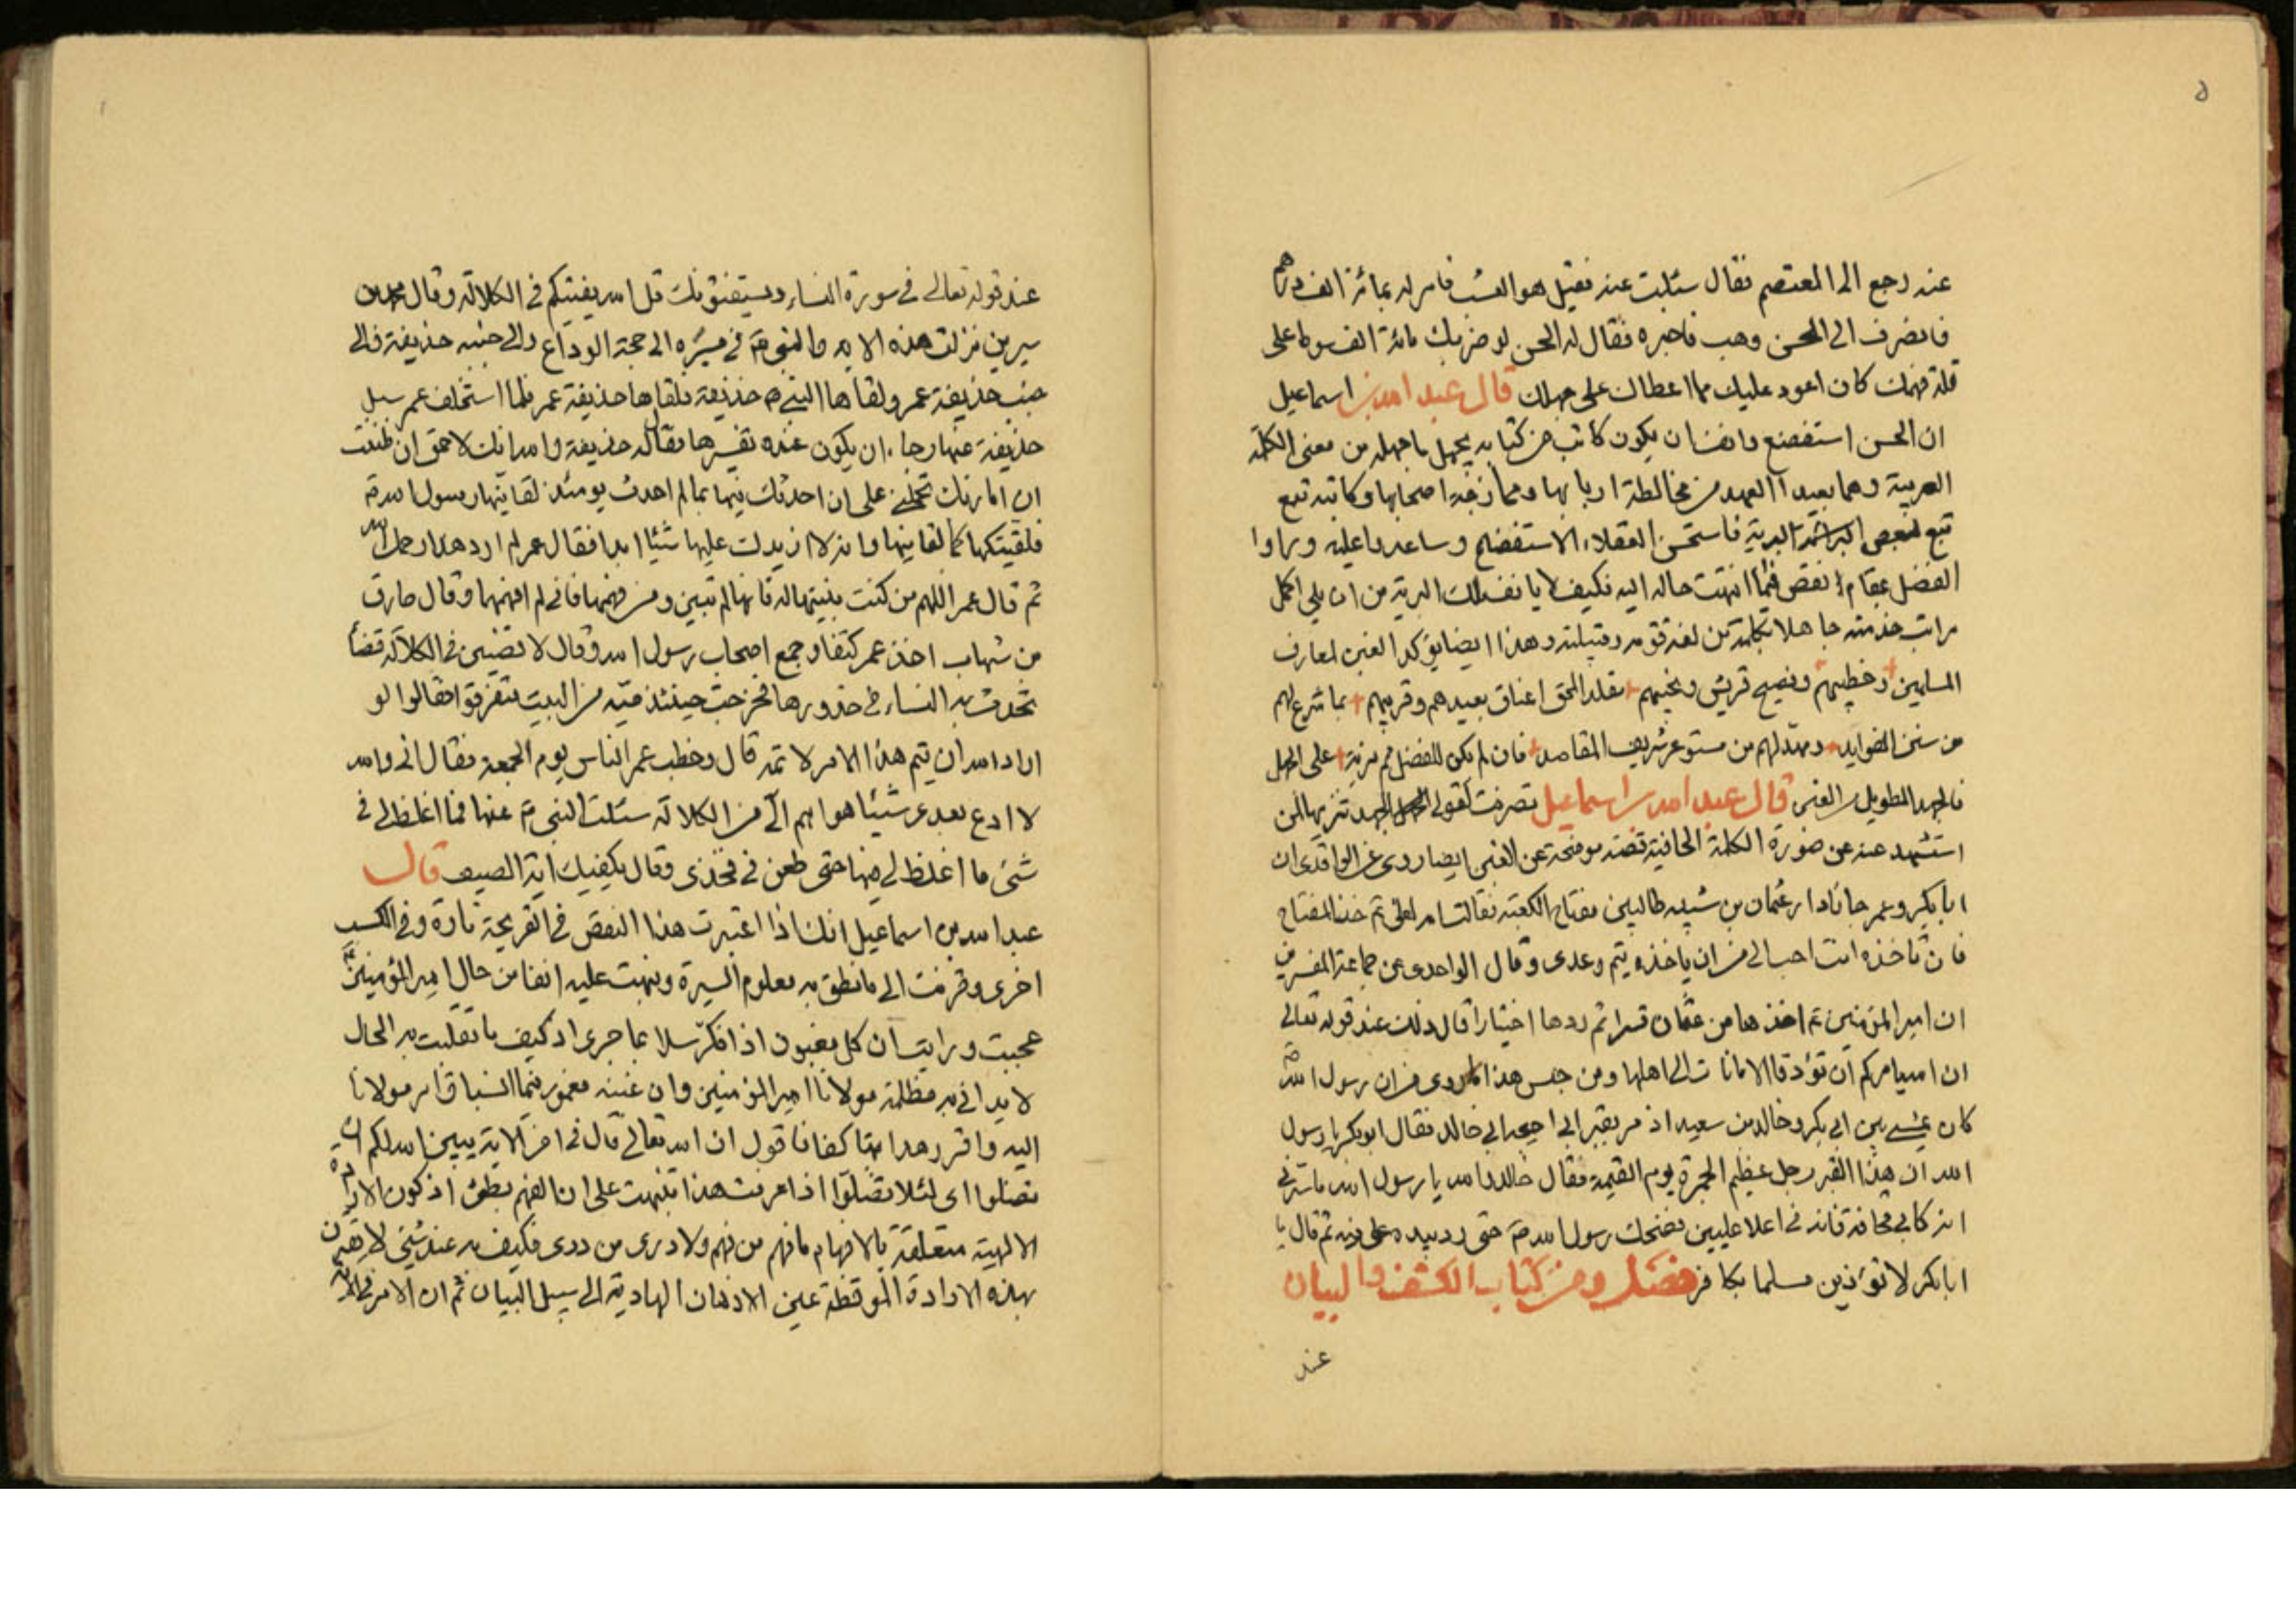 عنه رجع الى المعتصم فقال سئلت عنه فقيل هو العشب فامر له بمائة الف درهم
فانصرف الى الحسن وهب فاخبره فقال له الحسن لو ضربك مائة الف سوط على
قلة فهمك كان اعود عليك مما اعطاك على جهلك قال عبد الله بن اسماعيل
ان الحسن استفضع وانف ان يكون كاتب من كتابه يجهل ما جهله من معنى الكلمة
العربية وهما بعيدا العهد من مخالطة اربابها وممازجة اصحابها وكاتبه تبع
تبع لبعض البرية فاستحسن العقلاء الاستفضاح وساعدوا عليه وراوا
الفضل بمقام نقص فما انتهت حاله اليه فكيف لا يانف لك البرية من ان يلي اكمل
مراتب خدمته جاهلا بكلمة من لغة قومه وقبيلته وهذا ايضا يؤكد الغبن لمعارف
المسلمين وخطيبهم وفصيح قريش ونجيبهم مقلد الحق اعناق بعيدهم وقريبهم بما شرع لهم
من سنن الفوايد ومهد لهم من مستوعر شريف المقاصد فان لم يكن للفضل ثم مزية على الجهل
فالجهد الطويل الغبن قال عبد الله بن اسماعيل تصرفت كقولي الجهد تنزيها لمن
استشهد عنه عن صورة الكلمة الجافية قصة موضحة عن الغبن ايضا روى عن الواقدى ان
ابا بكر وعمر جاءا دار عثمان بن شيبه طالبين مفتاح الكعبة فقالت امه لعلي ثم خذ المفتاح
فان تاخذه انت احب الى من ان ياخذه تيم وعدى وقال الواحدى عن جماعة المفسرين
ان امير المؤمنين ع اخذها من عثمان قسرا ثم ردها اختيارا قال ذلك عند قوله تعالى
ان الله يامركم ان تؤدوا الامانات الى اهلها ومن جنس هذا المروى من ان رسول الله ص
كان يمشى بين ابي بكر وخالد بن سعيد اذ مر بقبر ابي احيحه ابي خالد فقال ابو بكر يا رسول
الله ان هذا القبر رجل عظيم الجمرة يوم القيمة فقال خالد والله يا رسول الله ما سرني
انه كابي قحافة فانه في اعلا عليين فضحك رسول الله ص حتى رد يده على فيه ثم قال يا
ابا بكر لا تؤذين مسلما بكافر فصل ومن كتاب الكشف والبيان
عند
عند قوله تعالى في سورة النساء ويستفتونك قل الله يفتيكم في الكلالة وقال محمد بن
سيرين نزلت هذه الاية والنبي ص في مسيره الى حجة الوداع والى جنبه حذيفة والى
جنب حذيفة عمر ولقاها النبي ص حذيفة فلقاها حذيفة عمر فلما استخلف عمر سئل
حذيفة عنها رجاء ان يكون عنده تفسيرها فقال له حذيفة والله انك لاحمق ان ظننت
ان امارتك تحملني على ان احدثك فيها بما لم احدث يومئذ لقانيها رسول الله ص
فلقيتكها كما لقانيها والله لا ازيدك عليها شيئا ابدا فقال عمر لم ارد هذا رحمك الله
ثم قال عمر اللهم من كنت بينتها له فانها لم تبين ومن فهمها فاني لم افهمها وقال طارق
بن شهاب اخذ عمر كتفا وجمع اصحاب رسول الله وقال لاقضين في الكلالة قضاء
تحدث به النساء في خدورها فخرجت حينئذ حية من البيت فتفرقوا فقالوا لو
اراد الله ان يتم هذا الامر لاتمه قال وخطب عمر الناس يوم الجمعة فقال اني والله
لا ادع بعدى شيئا هو اهم الى من الكلالة سئلت النبي ص عنها فما اغلظ لي في
شئ ما اغلظ لي فيها حتى طعن في فخذى وقال يكفيك اية الصيف قال
عبد الله بن اسماعيل انك اذا اعتبرت هذا النقص في القريحة تارة وفي الكسب
اخرى وقرنت الى ما نطق به معلوم السيرة ونبهت عليه انفا من حال امير المؤمنين ع
عجبت ورايت ان كل مغبون اذا فكر سلا بما جرى اذ كيف ما تقلبت به الحال
لا يدانى به مظلمة مولانا امير المؤمنين وان غبنه مغمور فيما انساق امر مولانا
اليه واقرر هدا بيتا كفانا قول ان الله تعالى قال في اخر الاية يبين الله لكم ان
تضلوا اى لئلا تضلوا اذا عرفت هذا تنبهت على ان الفهم بطئ اذ كون الارادة
الالهية متعلقة بالافهام ما فهم من فهم ولا درى من درى فكيف به عند شئ لا يقترن
بهذه الارادة الموقظة عين الاذهان الهادية الى سبيل البيان ثم ان الامر في الاية